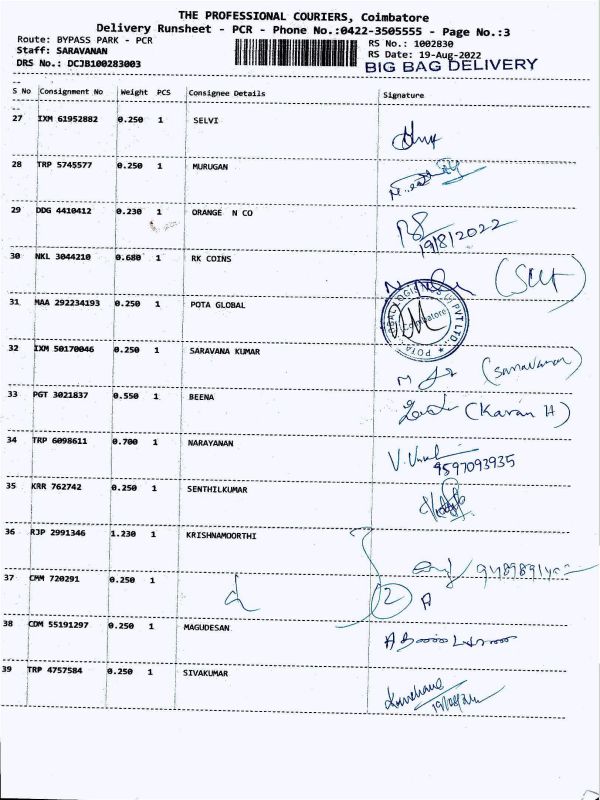 THE PROFESSIONAL COURIERS, Coimbatore
Delivery Runsheet - PCR - Phone No.:0422-3505555 - Page No.:3
Route: BYPASS PARK - PCR
RS No.: 1002830
Staff: SARAVANAN
RS Date: 19-Aug-2022
DRS No.: DCJB100283003
BIG BAG DELIVERY
S No Consignment No Weight PCS Consignee Details Signature
27 IXM 61952882 0.250 1 SELVI
28 TRP 5745577 0.250 1 MURUGAN
29 DDG 4410412 0.230 1 ORANGE N CO
19/8/2022
30 NKL 3044210 0.680 1 RK COINS
31 MAA 292234193 0.250 1 POTA GLOBAL
Coimbatore
32 IXM 50170046 0.250 1 SARAVANA KUMAR
(saravanan)
33 PGT 3021837 0.550 1 BEENA
(Karan H)
34 TRP 6098611 0.700 1 NARAYANAN
9597093935
35 KRR 762742 0.250 1 SENTHILKUMAR
36 RJP 2991346 1.230 1 KRISHNAMOORTHI
37 CMM 720291 0.250 1
2
38 CDM 55191297 0.250 1 MAGUDESAN
39 TRP 4757584 0.250 1 SIVAKUMAR